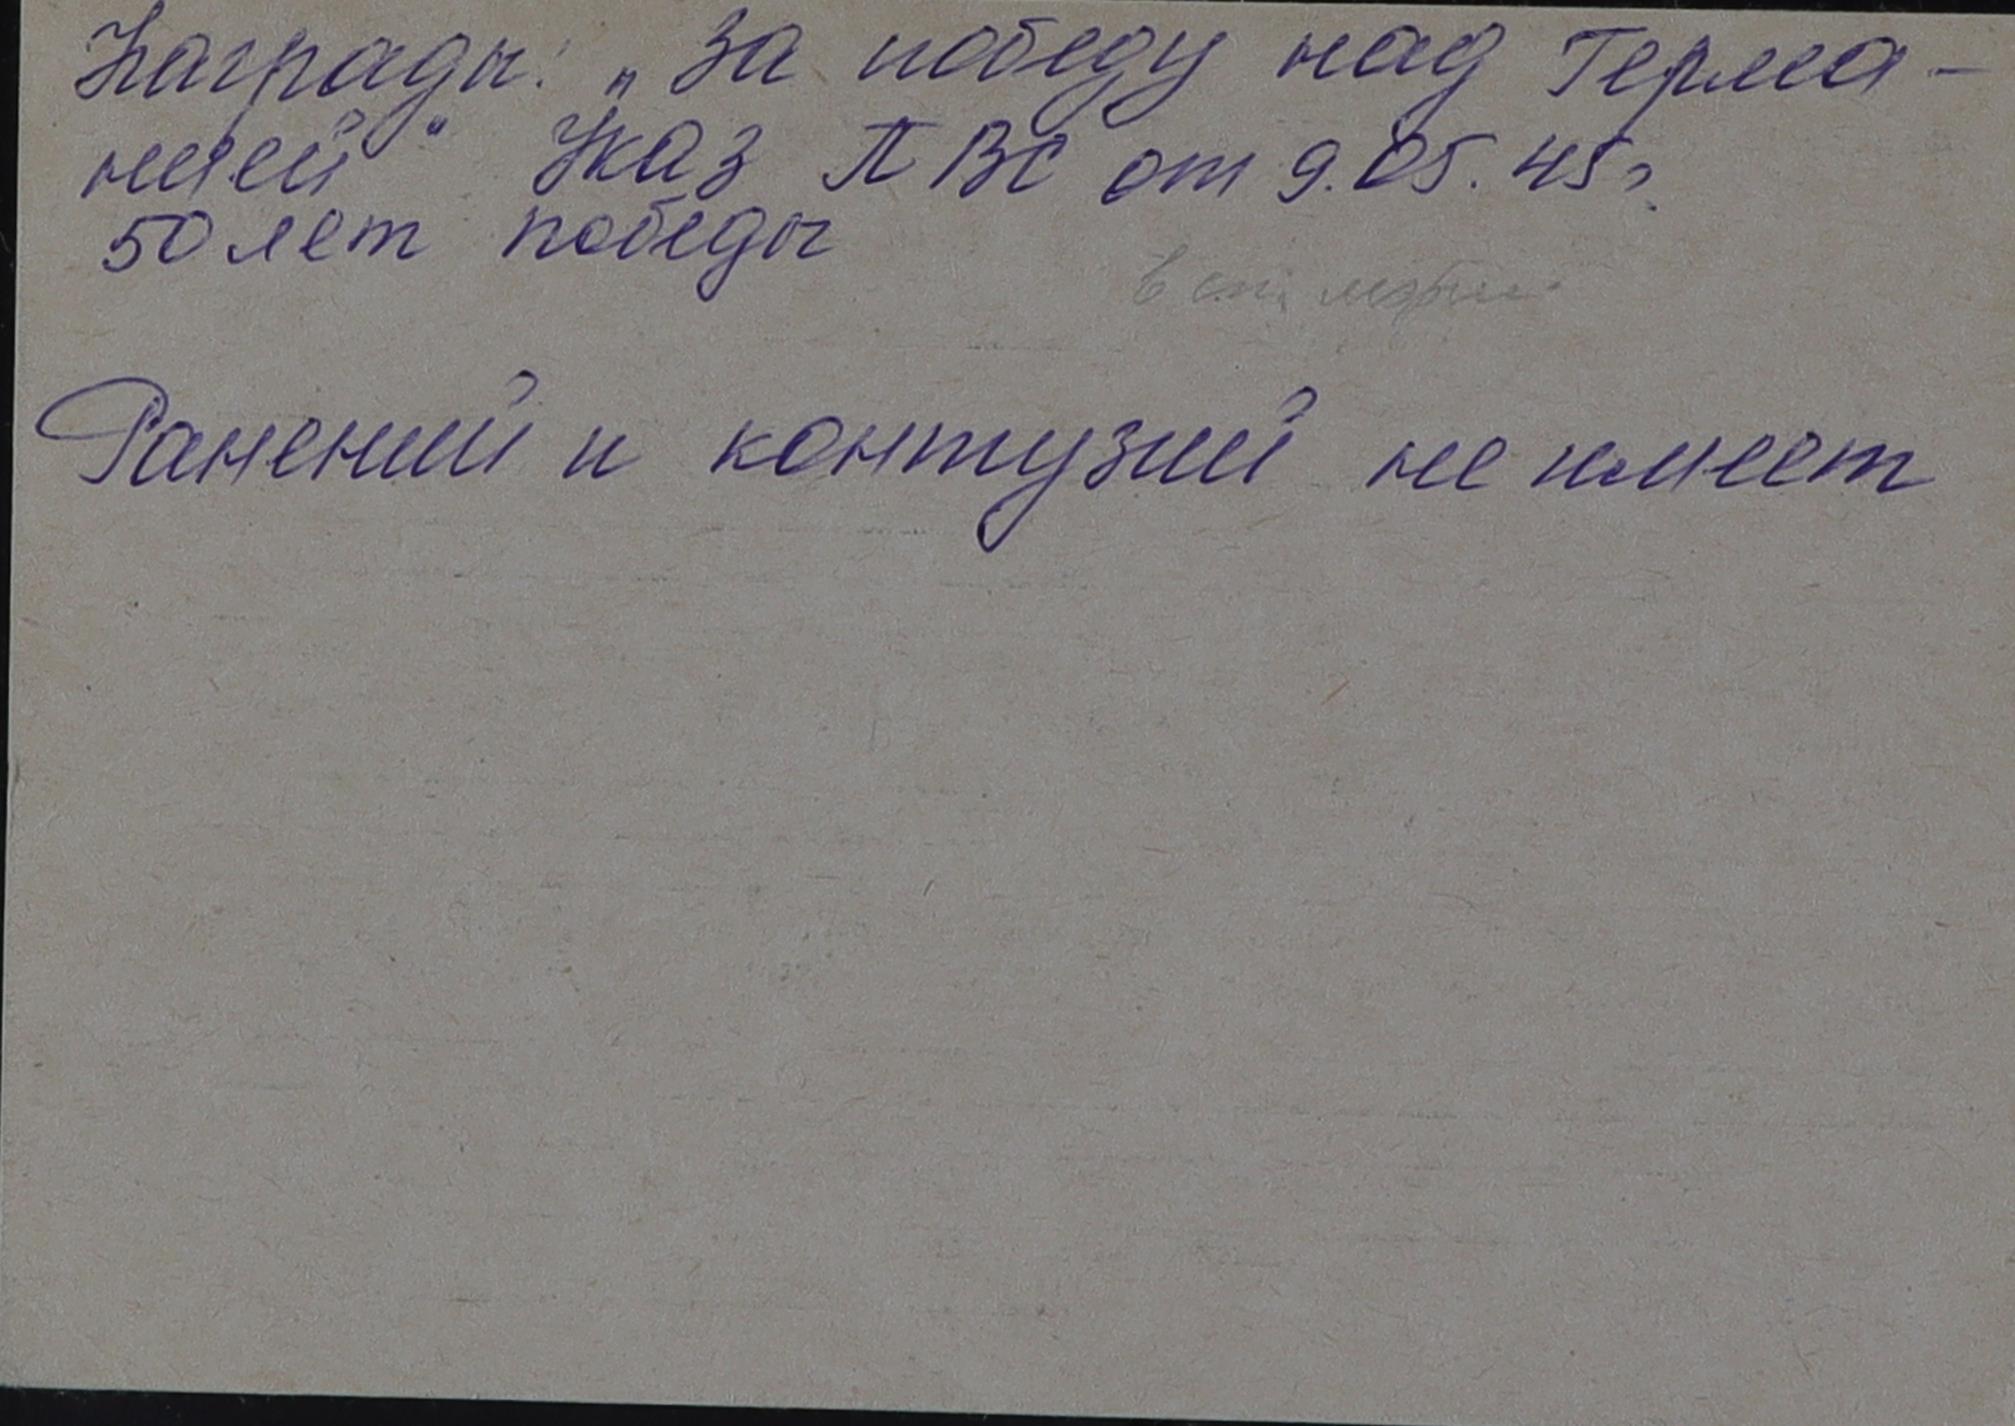 Награды: „За победу над Герма-
нией“ Указ ПВС от 9.05.45г.
50 лет победы
Ранений и контузий не имеет